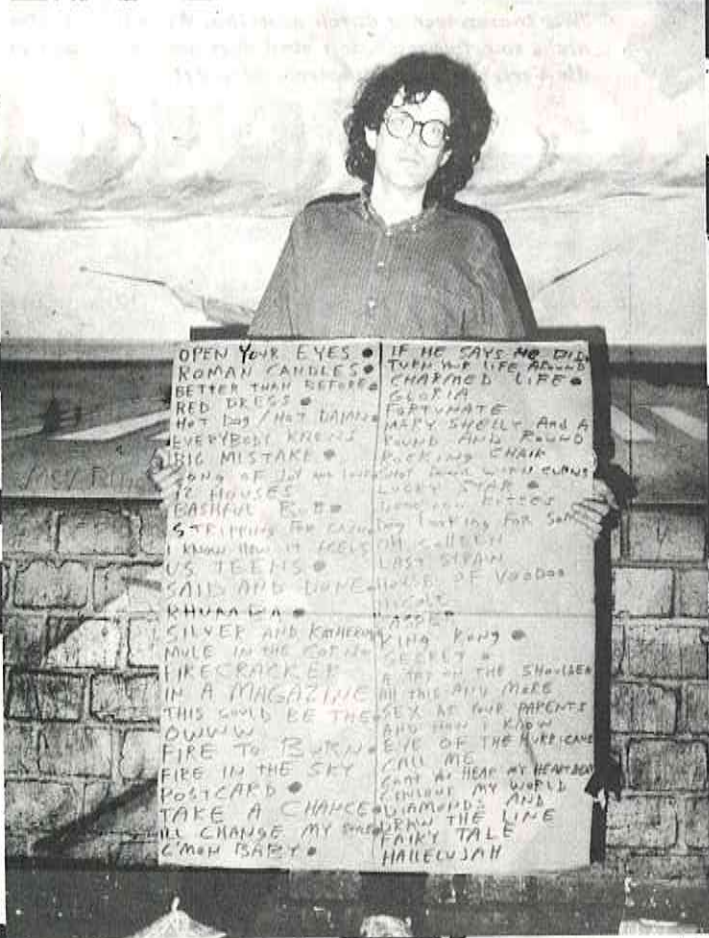 OPEN YOUR EYES
ROMAN CANDLES
BETTER THAN BEFORE
RED DRESS
HOT DOG / HOT DAMN
EVERYBODY KNOWS
BIG MISTAKE
SONG OF
12 HOUSES
BASHFUL BOB
STRIPPING FOR
I KNOW HOW IT FEELS
US TEENS
SAID AND DONE
RHUMBA
SILVER AND
MULE IN THE CORN
FIRECRACKER
IN A MAGAZINE
THIS COULD BE THE
OWWW
FIRE TO BURN
FIRE IN THE SKY
POSTCARD
TAKE A CHANCE
ILL CHANGE MY
C'MON BABY
IF HE SAYS HE DID
TURN YOUR LIFE AROUND
CHARMED LIFE
GLORIA
FORTUNATE
MARY SHELLY AND A
ROUND AND ROUND
ROCKING CHAIR
LUCKY STAR
LOOKING FOR
OH COLLEEN
LAST STRAW
HOUSE OF VOODOO
KING KONG
SECRET
A TAP ON THE SHOULDER
All THIS AND MORE
SEX AS YOUR PARENTS
AND HOW I KNOW
EYE OF THE HURRICANE
CALL ME
HEAR MY HEARTBEAT
MY WORLD
DIAMONDS AND
DRAW THE LINE
FAIRY TALE
HALLELUJAH